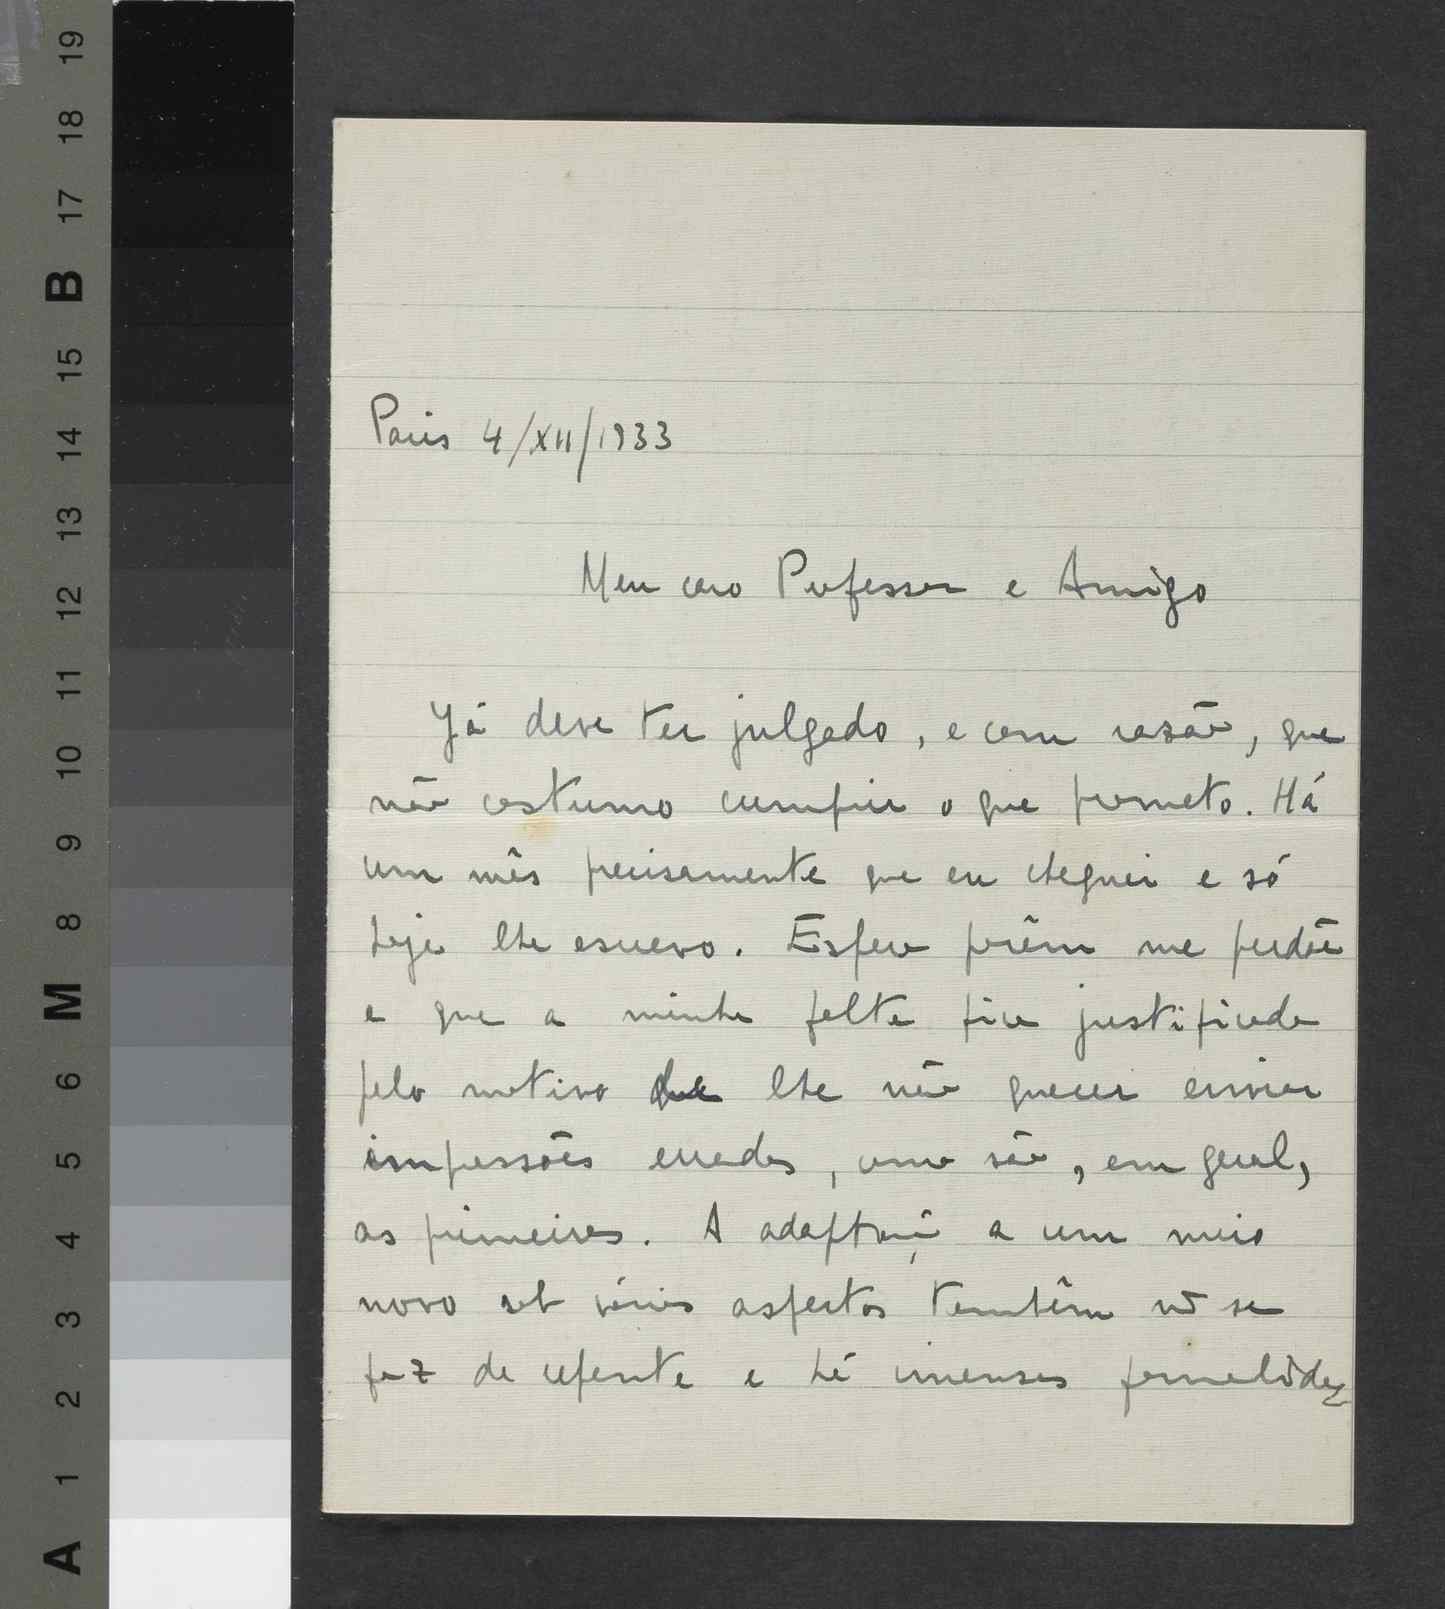 19
18
17
B
15
14
13
12
11
10
9
8
M
7
6
5
4
3
2
1
A
Paris 4/XII/1933
Meu caro Professor e Amigo
Já deve ter julgado, e com razão, que
não costumo cumprir o que prometo. Há
um mês precisamente que eu cheguei e só
hoje lhe escrevo. Espero porêm me perdôe
e que a minha falta fica justificada
pelo motivo que lhe não querer enviar
impressões erradas, como são, em geral,
as primeiras. A adaptação a um meio
novo sob vários aspectos tambêm não se
faz de repente e há imensas formalidades